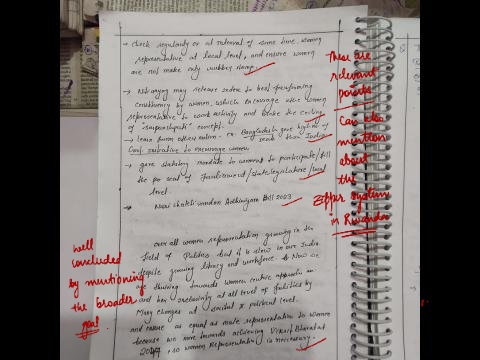 → Check regularly or at interval of some time. Women
representative at local level, and ensure women
are not make only rubber stamp.
→ Niti aayog may release index to best performing
constituency by women, which encourage other women
representative to work actively and broke the ceiling
of "surpanchpati" concept.
→ learn from other nation - ex. Bangladesh give high no. of
seats than India
Conf. initiative to encourage women
→ gave statutory mandate to women to participate / fill
the seat of Parliament / state legislature / local
level.
→ Nari shakti vandan Adhiniyam Bill 2023
over all women representation growing in the
field of Politics but it is slow in our India
despite growing literacy and workforce. Now we
are thinking towards women centric approach in
and her inclusivity at all level of facilities by
Many changes at societal & political level.
and ensure as equal as male representation to women
because we move towards achieving Viksit Bharat at
2047, so women Representation is necessary.
These are
relevant
points
Can also
mention
about
the
system
in Rwanda
well
concluded
by mentioning
the broader
goal